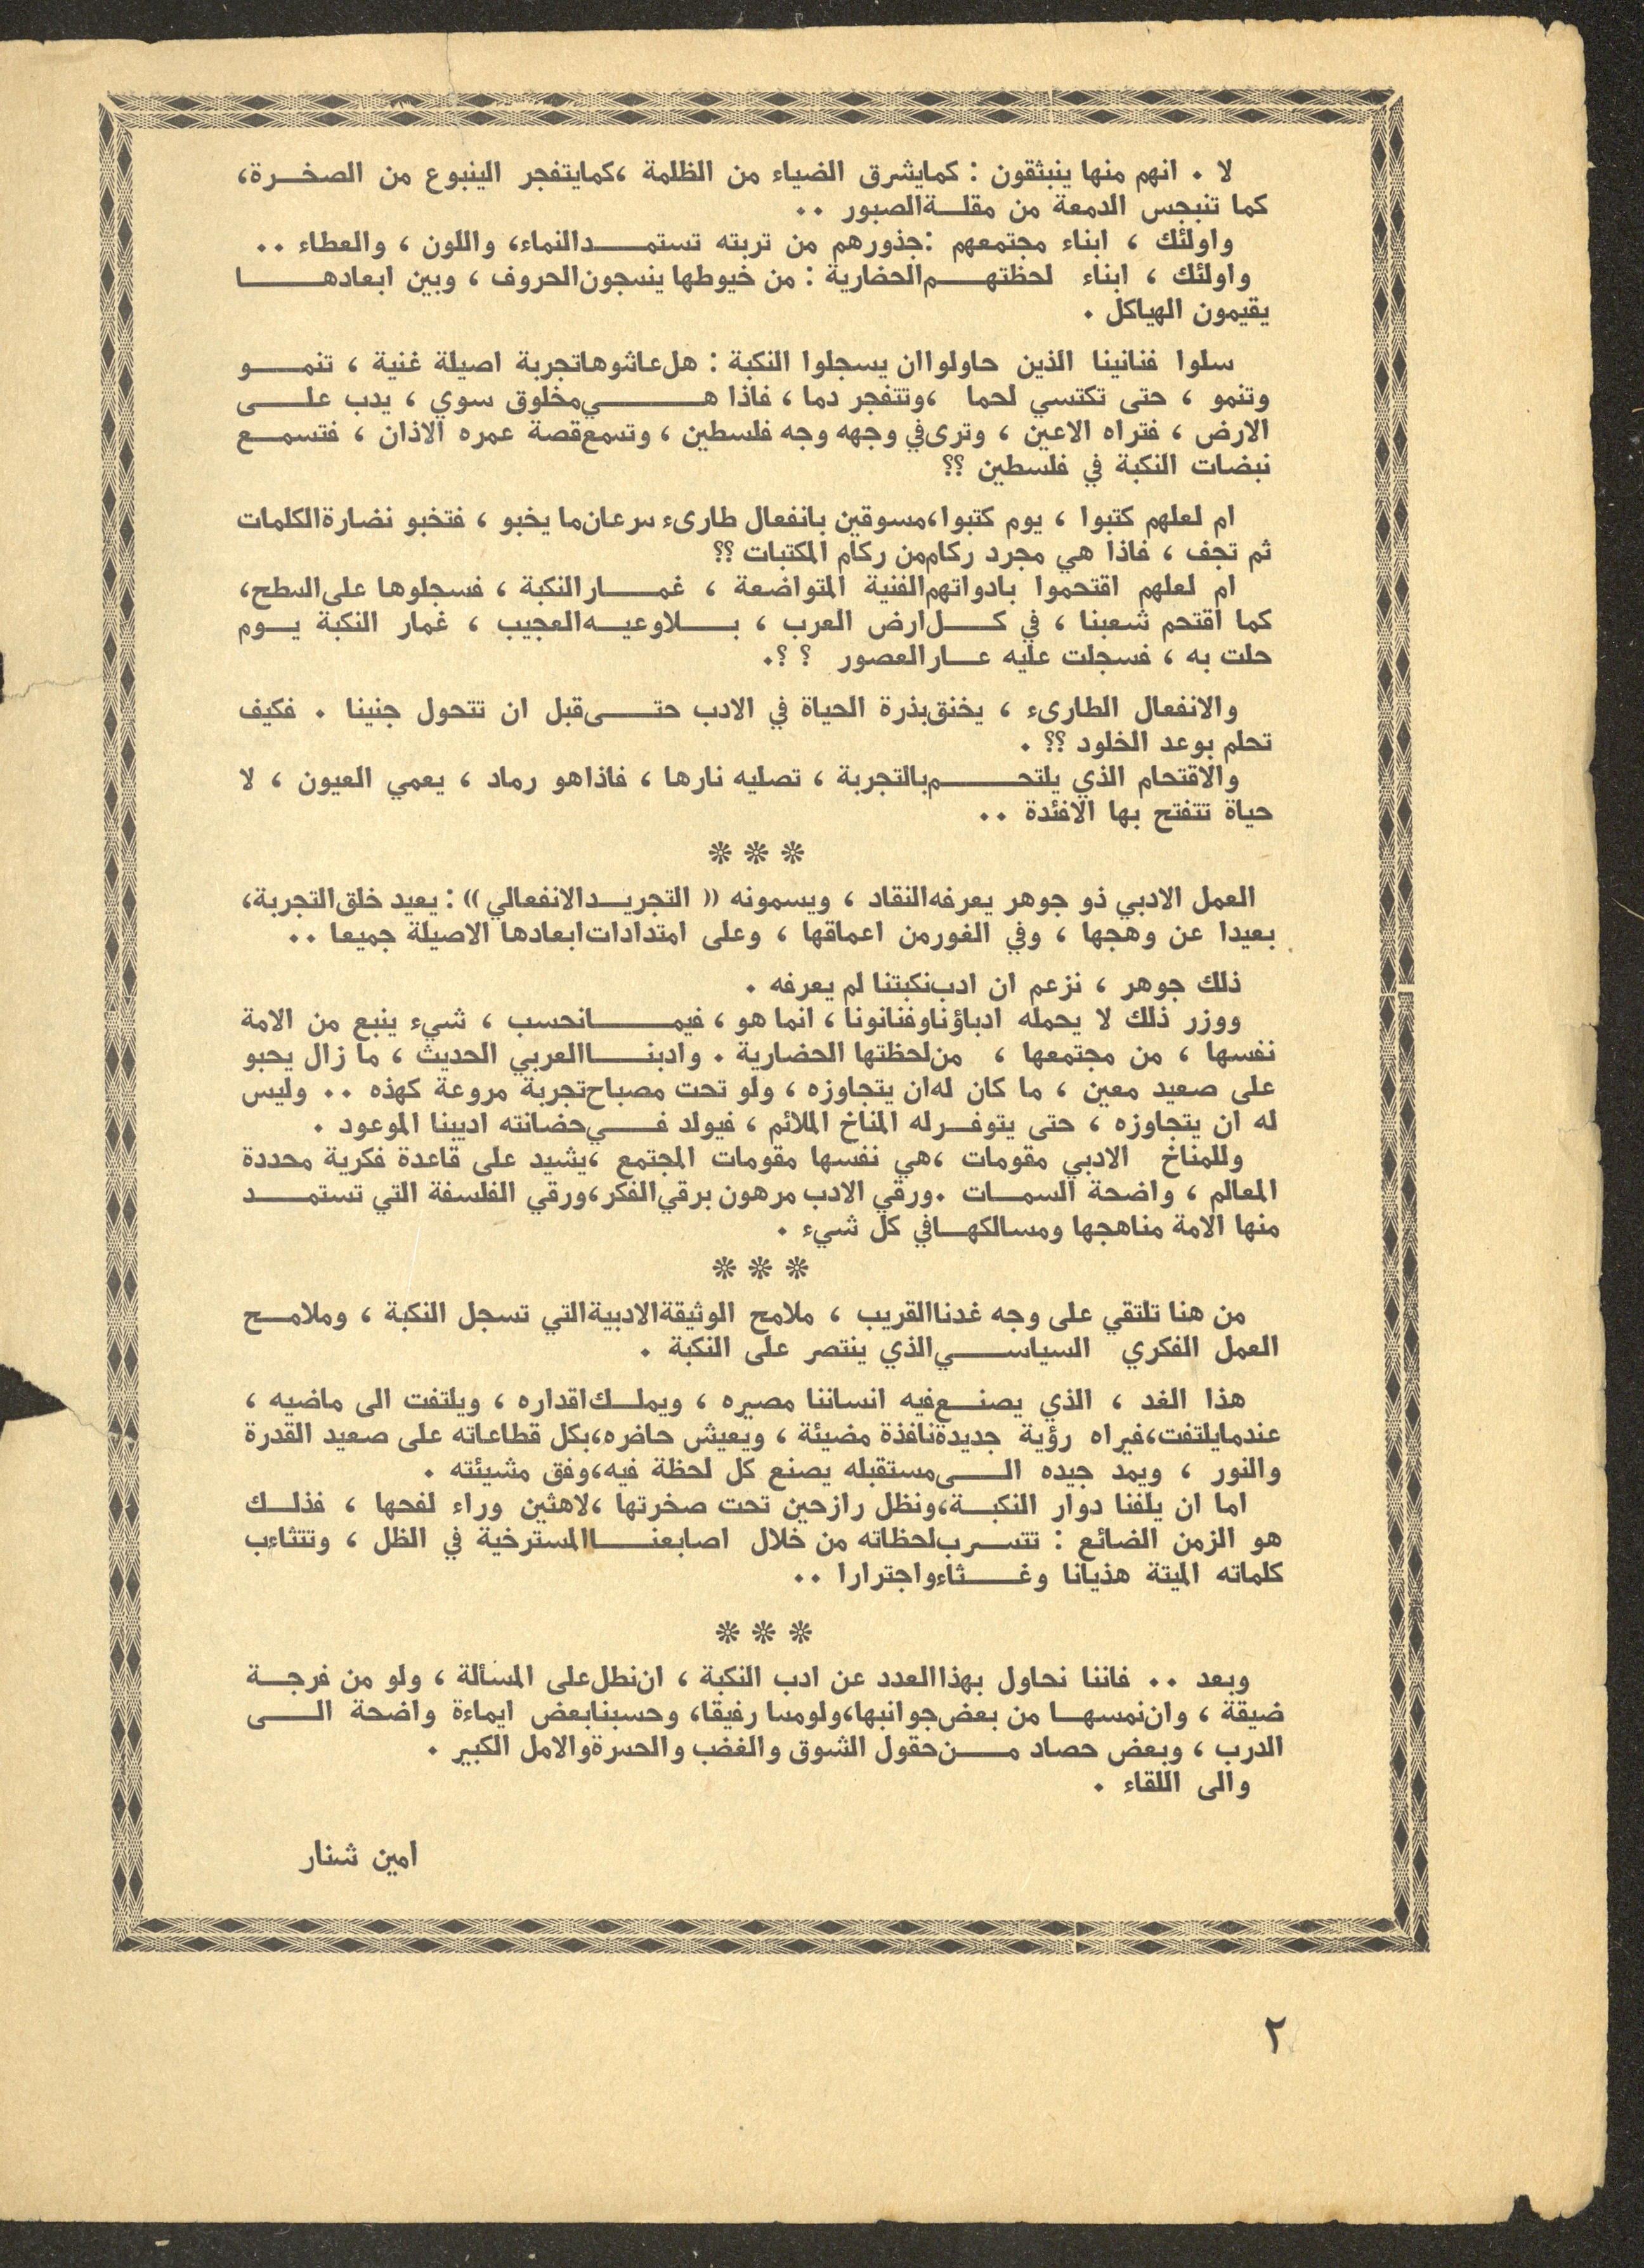 لا . انهم منها ينبثقون : كما يشرق الضياء من الظلمة ، كما يتفجر الينبوع من الصخرة ،
كما تنبجس الدمعة من مقلة الصبور ..
واولئك ، ابناء مجتمعهم : جذورهم من تربته تستمد النماء ، واللون ، والعطاء ..
واولئك ، ابناء لحظتهم الحضارية : من خيوطها ينسجون الحروف ، وبين ابعادها
يقيمون الهياكل .
سلوا فنانينا الذين حاولوا ان يسجلوا النكبة : هل عاشوها تجربة اصيلة غنية ، تنمو
وتنمو ، حتى تكتسي لحما ، وتتفجر دما ، فاذا هي مخلوق سوي ، يدب على
الارض ، فتراه الاعين ، وترى في وجهه وجه فلسطين ، وتسمع قصة عمره الاذان ، فتسمع
نبضات النكبة في فلسطين ؟؟
ام لعلهم كتبوا ، يوم كتبوا ، مسوقين بانفعال طارىء سرعان ما يخبو ، فتخبو نضارة الكلمات
ثم تجف ، فاذا هي مجرد ركام من ركام المكتبات ؟؟
ام لعلهم اقتحموا بادواتهم الفنية المتواضعة ، غمار النكبة ، فسجلوها على السطح ،
كما اقتحم شعبنا ، في كل ارض العرب ، بلا وعيه العجيب ، غمار النكبة يوم
حلت به ، فسجلت عليه عار العصور ؟ ؟.
والانفعال الطارىء ، يخنق بذرة الحياة في الادب حتى قبل ان تتحول جنينا . فكيف
تحلم بوعد الخلود ؟؟ .
والاقتحام الذي يلتحم بالتجربة ، تصليه نارها ، فاذا هو رماد ، يعمي العيون ، لا
حياة تتفتح بها الافئدة ..
* * *
العمل الادبي ذو جوهر يعرفه النقاد ، ويسمونه (( التجريد الانفعالي )) : يعيد خلق التجربة ،
بعيدا عن وهجها ، وفي الغور من اعماقها ، وعلى امتدادات ابعادها الاصيلة جميعا ..
ذلك جوهر ، نزعم ان ادب نكبتنا لم يعرفه .
ووزر ذلك لا يحمله ادباؤنا وفنانونا ، انما هو ، فيما نحسب ، شيء ينبع من الامة
نفسها ، من مجتمعها ، من لحظتها الحضارية . وادبنا العربي الحديث ، ما زال يحبو
على صعيد معين ، ما كان له ان يتجاوزه ، ولو تحت مصباح تجربة مروعة كهذه .. وليس
له ان يتجاوزه ، حتى يتوفر له المناخ الملائم ، فيولد في حضانته اديبنا الموعود .
وللمناخ الادبي مقومات ، هي نفسها مقومات المجتمع ، يشيد على قاعدة فكرية محددة
المعالم ، واضحة السمات . ورقي الادب مرهون برقي الفكر ، ورقي الفلسفة التي تستمد
منها الامة مناهجها ومسالكها في كل شيء .
* * *
من هنا تلتقي على وجه غدنا القريب ، ملامح الوثيقة الادبية التي تسجل النكبة ، وملامح
العمل الفكري السياسي الذي ينتصر على النكبة .
هذا الغد ، الذي يصنع فيه انساننا مصيره ، ويملك اقداره ، ويلتفت الى ماضيه ،
عندما يلتفت ، فيراه رؤية جديدة نافذة مضيئة ، ويعيش حاضره ، بكل قطاعاته على صعيد القدرة
والنور ، ويمد جيده الى مستقبله يصنع كل لحظة فيه ، وفق مشيئته .
اما ان يلفنا دوار النكبة ، ونظل رازحين تحت صخرتها ، لاهثين وراء لفحها ، فذلك
هو الزمن الضائع : تتسرب لحظاته من خلال اصابعنا المسترخية في الظل ، وتتثاءب
كلماته الميتة هذيانا وغثاء واجترارا ..
* * *
وبعد .. فاننا نحاول بهذا العدد عن ادب النكبة ، ان نطل على المسألة ، ولو من فرجة
ضيقة ، وان نمسها من بعض جوانبها ، ولو مسا رفيقا ، وحسبنا بعض ايماءة واضحة الى
الدرب ، وبعض حصاد من حقول الشوق والغضب والحسرة والامل الكبير .
والى اللقاء .
امين شنار
٢